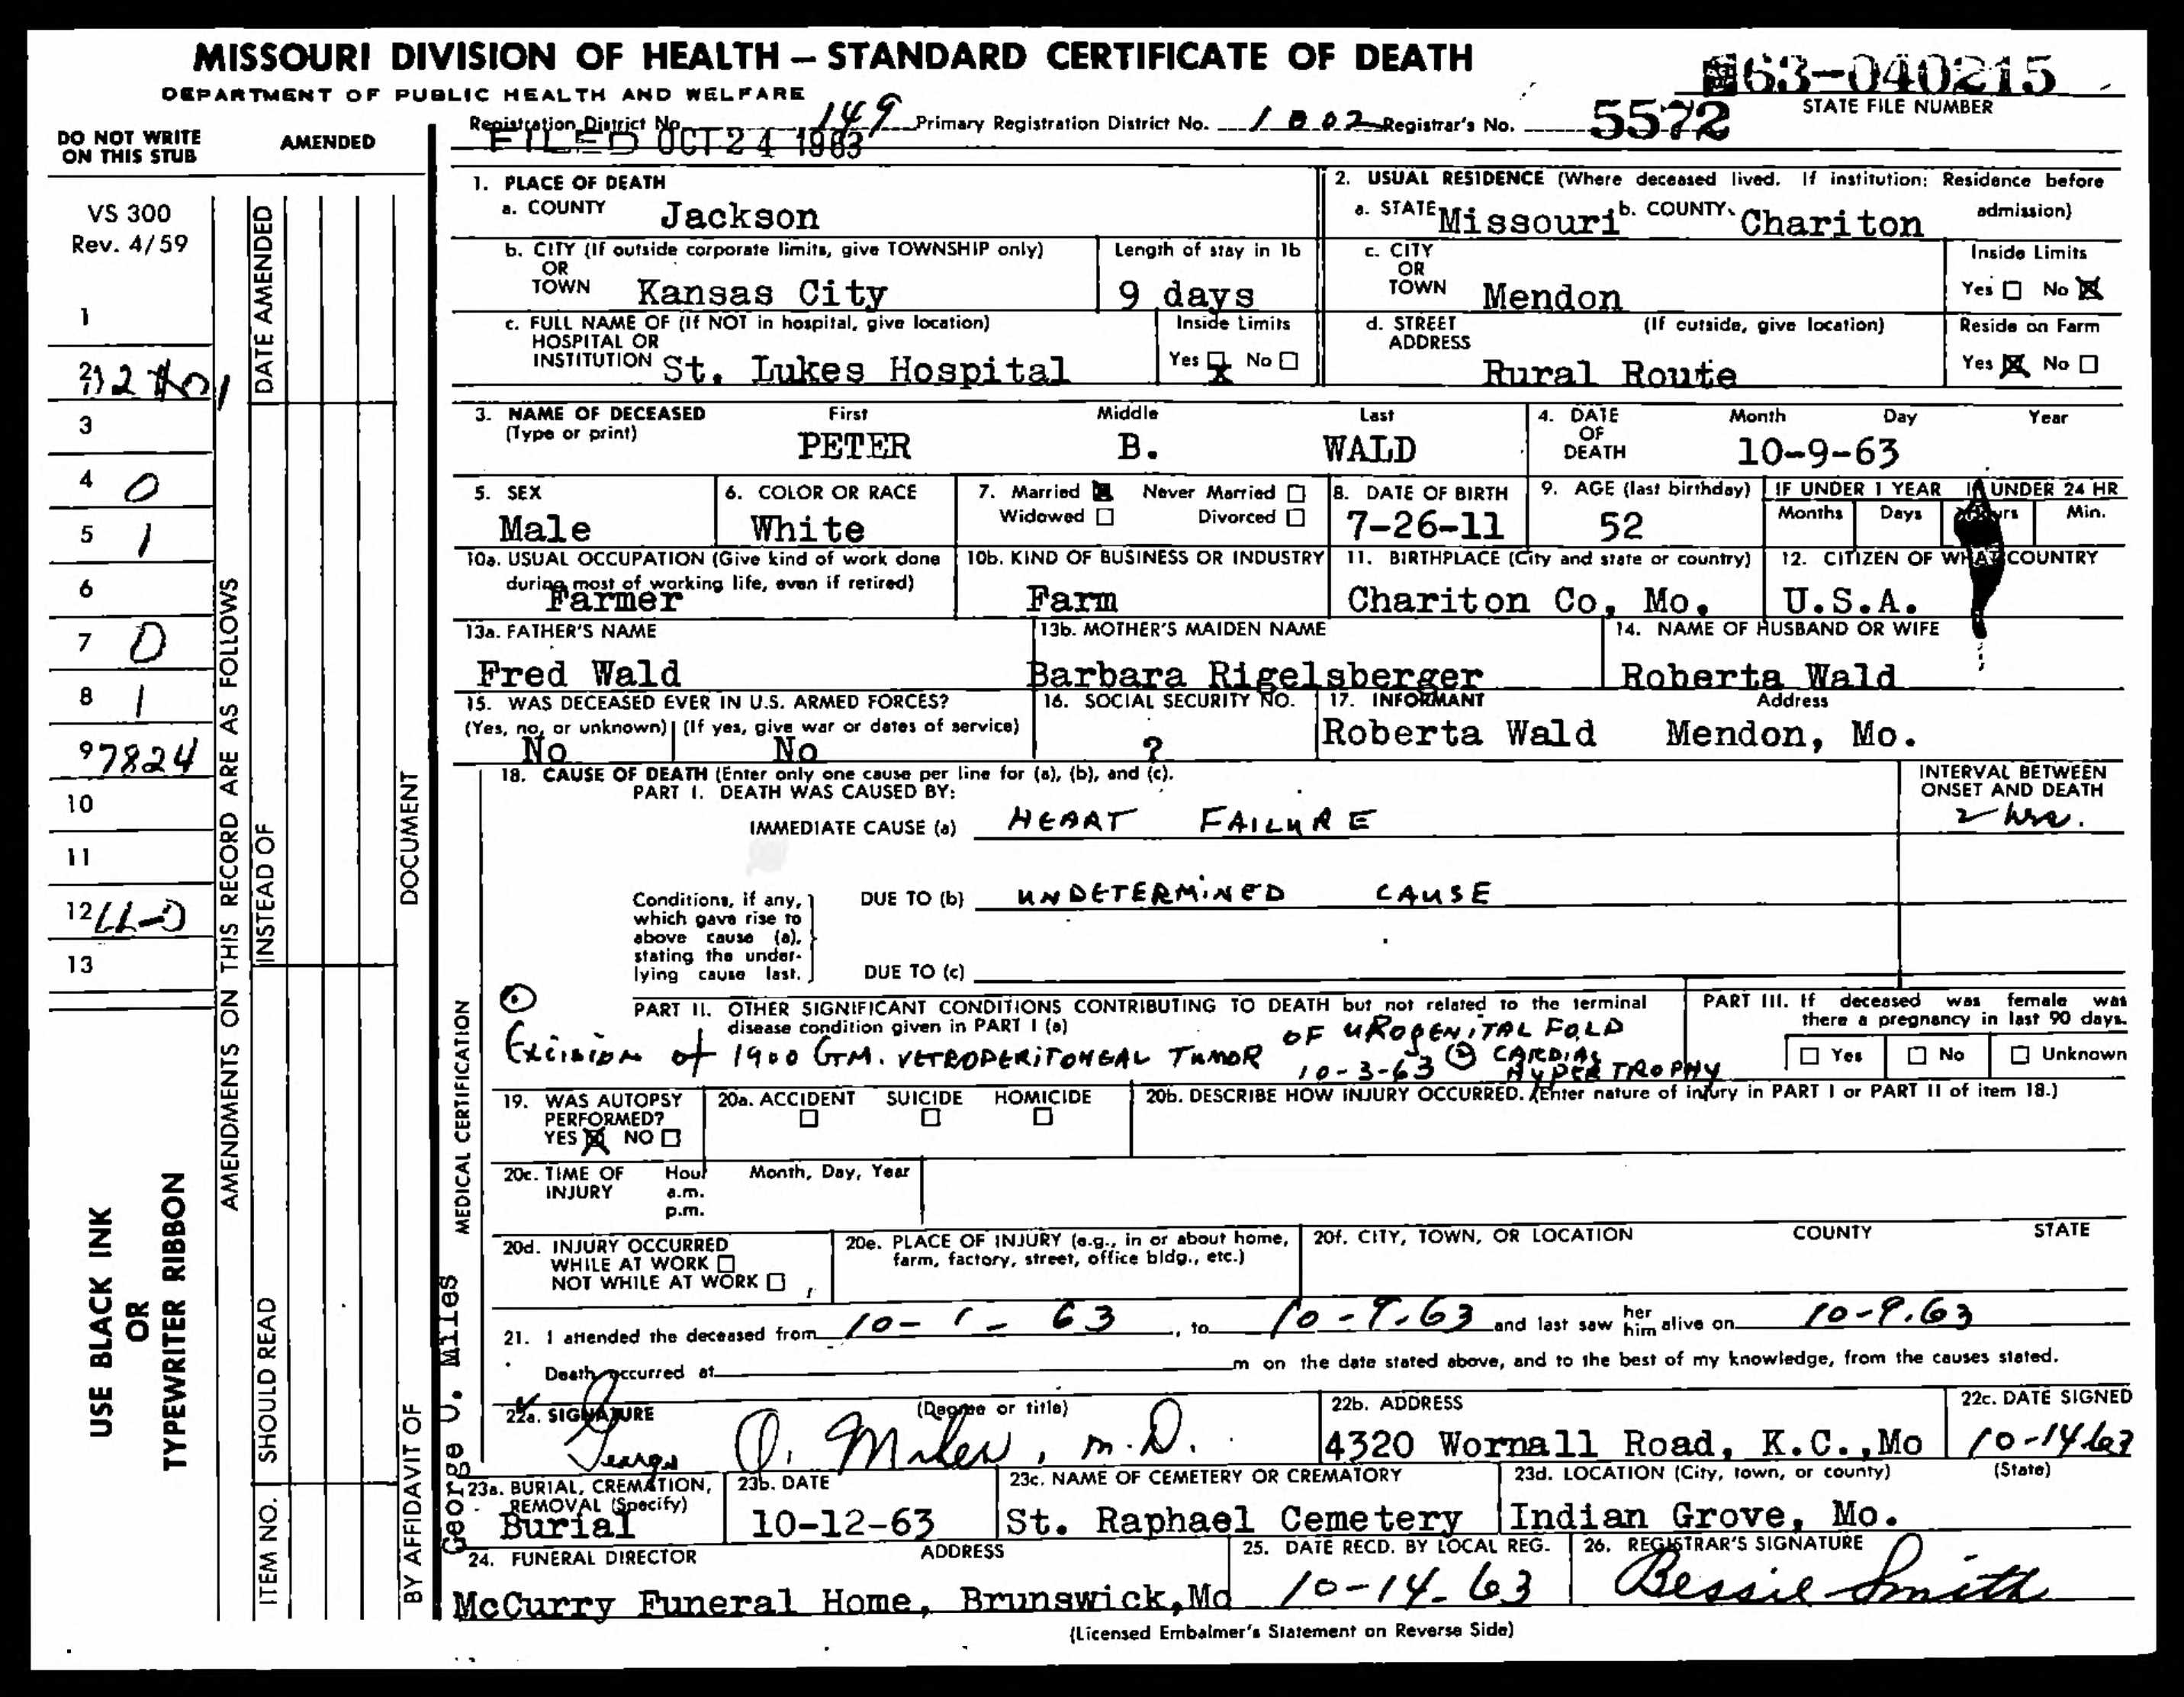 MISSOURI DIVISION OF HEALTH — STANDARD CERTIFICATE OF DEATH
DEPARTMENT OF PUBLIC HEALTH AND WELFARE
63-040215
STATE FILE NUMBER
Registration District No. 149 Primary Registration District No. 1002 Registrar's No. 5572
FILED OCT 24 1963
DO NOT WRITE ON THIS STUB
AMENDED
VS 300
Rev. 4/59
1
2
3
4 0
5 1
6
7 0
8 1
9 7824
10
11
12
13
USE BLACK INK
OR
TYPEWRITER RIBBON
AMENDMENTS ON THIS RECORD ARE AS FOLLOWS
DATE AMENDED
INSTEAD OF
SHOULD READ
ITEM NO.
DOCUMENT
BY AFFIDAVIT OF
MEDICAL CERTIFICATION
George O. Miles
1. PLACE OF DEATH
a. COUNTY Jackson
b. CITY (If outside corporate limits, give TOWNSHIP only) OR TOWN Kansas City
Length of stay in 1b 9 days
c. FULL NAME OF (If NOT in hospital, give location) HOSPITAL OR INSTITUTION St. Lukes Hospital
Inside Limits Yes X No
2. USUAL RESIDENCE (Where deceased lived. If institution: Residence before admission)
a. STATE Missouri b. COUNTY Chariton
c. CITY OR TOWN Mendon
Inside Limits Yes No X
d. STREET ADDRESS (If outside, give location) Rural Route
Reside on Farm Yes X No
3. NAME OF DECEASED (Type or print) First Middle Last
PETER B. WALD
4. DATE OF DEATH Month Day Year
10-9-63
5. SEX Male
6. COLOR OR RACE White
7. Married Never Married Widowed Divorced
8. DATE OF BIRTH 7-26-11
9. AGE (last birthday) 52
IF UNDER 1 YEAR Months Days
IF UNDER 24 HR Hours Min.
10a. USUAL OCCUPATION (Give kind of work done during most of working life, even if retired) Farmer
10b. KIND OF BUSINESS OR INDUSTRY Farm
11. BIRTHPLACE (City and state or country) Chariton Co, Mo.
12. CITIZEN OF WHAT COUNTRY U.S.A.
13a. FATHER'S NAME Fred Wald
13b. MOTHER'S MAIDEN NAME Barbara Rigelsberger
14. NAME OF HUSBAND OR WIFE Roberta Wald
15. WAS DECEASED EVER IN U.S. ARMED FORCES?
(Yes, no, or unknown) (If yes, give war or dates of service)
No No
16. SOCIAL SECURITY NO. ?
17. INFORMANT Address
Roberta Wald Mendon, Mo.
18. CAUSE OF DEATH (Enter only one cause per line for (a), (b), and (c).
PART I. DEATH WAS CAUSED BY:
INTERVAL BETWEEN ONSET AND DEATH
IMMEDIATE CAUSE (a) HEART FAILURE 2 hrs.
Conditions, if any, which gave rise to above cause (a), stating the underlying cause last.
DUE TO (b) UNDETERMINED CAUSE
DUE TO (c)
PART II. OTHER SIGNIFICANT CONDITIONS CONTRIBUTING TO DEATH but not related to the terminal disease condition given in PART I (a)
① Excision of 1900 GM. RETROPERITONEAL TUMOR OF UROGENITAL FOLD
10-3-63 ② CARDIAC HYPERTROPHY
PART III. If deceased was female was there a pregnancy in last 90 days.
Yes No Unknown
19. WAS AUTOPSY PERFORMED? YES X NO
20a. ACCIDENT SUICIDE HOMICIDE
20b. DESCRIBE HOW INJURY OCCURRED. (Enter nature of injury in PART I or PART II of item 18.)
20c. TIME OF INJURY Hour a.m. p.m. Month, Day, Year
20d. INJURY OCCURRED WHILE AT WORK NOT WHILE AT WORK
20e. PLACE OF INJURY (e.g., in or about home, farm, factory, street, office bldg., etc.)
20f. CITY, TOWN, OR LOCATION COUNTY STATE
21. I attended the deceased from 10-1-63, to 10-9-63 and last saw her him alive on 10-9-63
Death occurred at m on the date stated above, and to the best of my knowledge, from the causes stated.
22a. SIGNATURE (Degree or title) George O. Miles, M.D.
22b. ADDRESS 4320 Wornall Road, K.C.,Mo
22c. DATE SIGNED 10-14-63
23a. BURIAL, CREMATION, REMOVAL (Specify) Burial
23b. DATE 10-12-63
23c. NAME OF CEMETERY OR CREMATORY St. Raphael Cemetery
23d. LOCATION (City, town, or county) (State) Indian Grove, Mo.
24. FUNERAL DIRECTOR ADDRESS
McCurry Funeral Home, Brunswick,Mo
25. DATE RECD. BY LOCAL REG. 10-14-63
26. REGISTRAR'S SIGNATURE Bessie Smith
(Licensed Embalmer's Statement on Reverse Side)